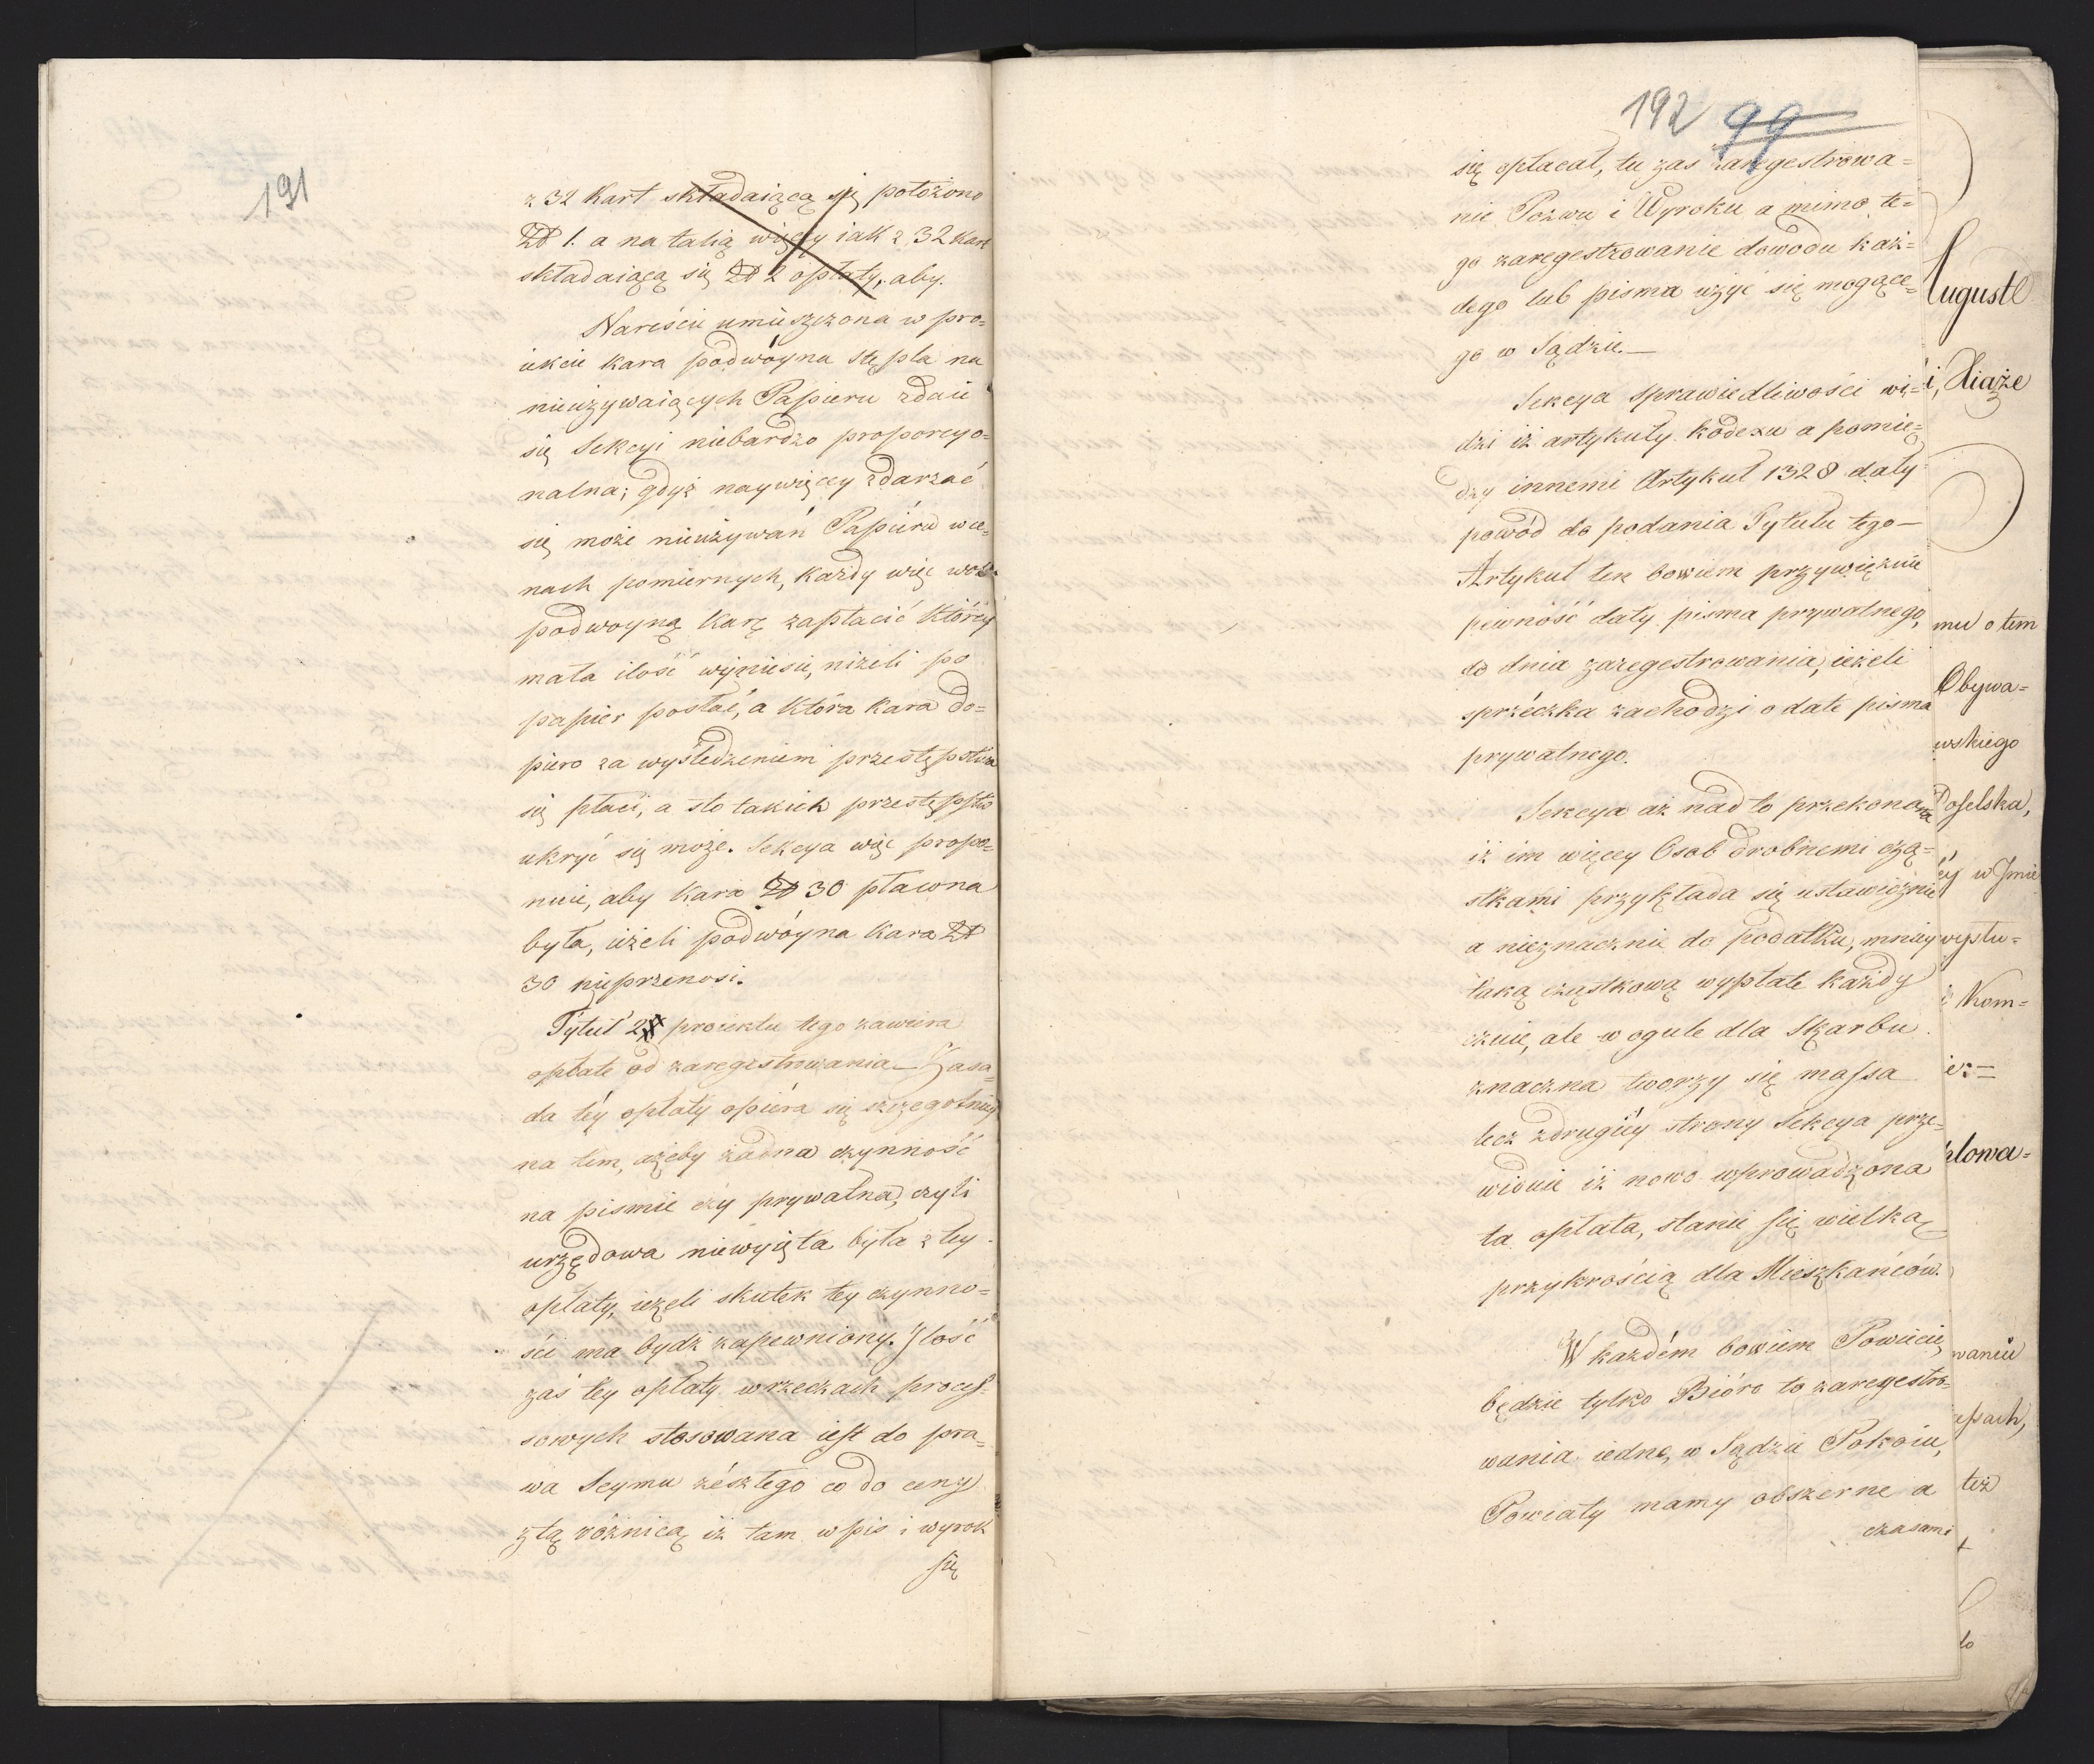 191
z 32 Kart składaiącą się położono
Zł 1. a na talią więcéy iak z 32 Kart
składaiącą się Zł 2 opłaty, aby.
Nareście umieszczona w pro=
iekcie kara podwóyna stępla na
nieużywaiących Papieru zdaie
się Sekcyi niebardzo proporcyo=
nalna; gdyż naywięcey zdarzać
się może nieużywań Papiéru w ce=
nach pomiernych, każdy więc woli
podwoyną karę zapłacić któréy
mała ilość wyniesie, niżeli po
papier posłać, a która kara do=
piero za wyśledzeniem przestępstwa
się płaci, a sto takich przestępstw
ukryć się może. Sekcya więc propo=
nuie, aby kara Zł 30 pławna
była, ieżeli podwóyna kara Zł
30 nieprzenosi.
Tytuł 2 proiektu tego zawiera
opłatę od zaregestrowania – Zasa=
da téy opłaty opiéra się szczególniéy
na tém, ażeby żadna czynność
na pismie czy prywatna, czyli
urzędowa niewyięta była z tey
opłaty, ieżeli skutek tey czynno=
ści ma bydź zapewniony. Ilość
zaś tey opłaty w rzeczach proces=
sowych stosowana iest do pra=
wa Seymu zészłego co do ceny
z tą różnicą iż tam wpis i wyrok
się
192 99
się opłacał, tu zas zaregestrowa=
nie Pozwu i Wyroku a mimo te=
go zaregestrowanie dowodu każ=
dego lub pisma użyć się mogące=
go w Sądzie. –
Sekcya sprawiedliwości wi=
dzi iż artykuły kodexu a pomię=
dzy innemi Artykuł 1328 dały
powód do podania Tytułu tego –
Artykuł ten bowiem przywięzuie
pewność daty pisma prywatnego,
do dnia zaregestrowania, ieżeli
sprzeczka zachodzi o date pisma
prywatnego.
Sekcya aż nadto przekonana
iż im więcey Osob drobnemi czą=
stkami przykłada się ustawicznie
a nieznacznie do podatku, mniey
taką cząstkową wypłate każdy
czuie, ale w ogule dla Skarbu
znaczna tworzy się massa
lecz z drugiéy strony Sekcya prze=
widuie iż nowo wprowadzona
ta opłata, stanie się wielką
przykrością dla Mieszkańców.
W każdém bowiem Powiecie
będzie tylko Bióro to zaregestro=
wania iedne, w Sądzie Pokoiu,
Powiaty mamy obszerne a
czasami
August
i, Xiąże
mu o tem
Obywa=
wskiego
Poselska,
éy w Jmie
wystu=
i Kom=
iez=
plowa=
waniu
epsach,
też
to